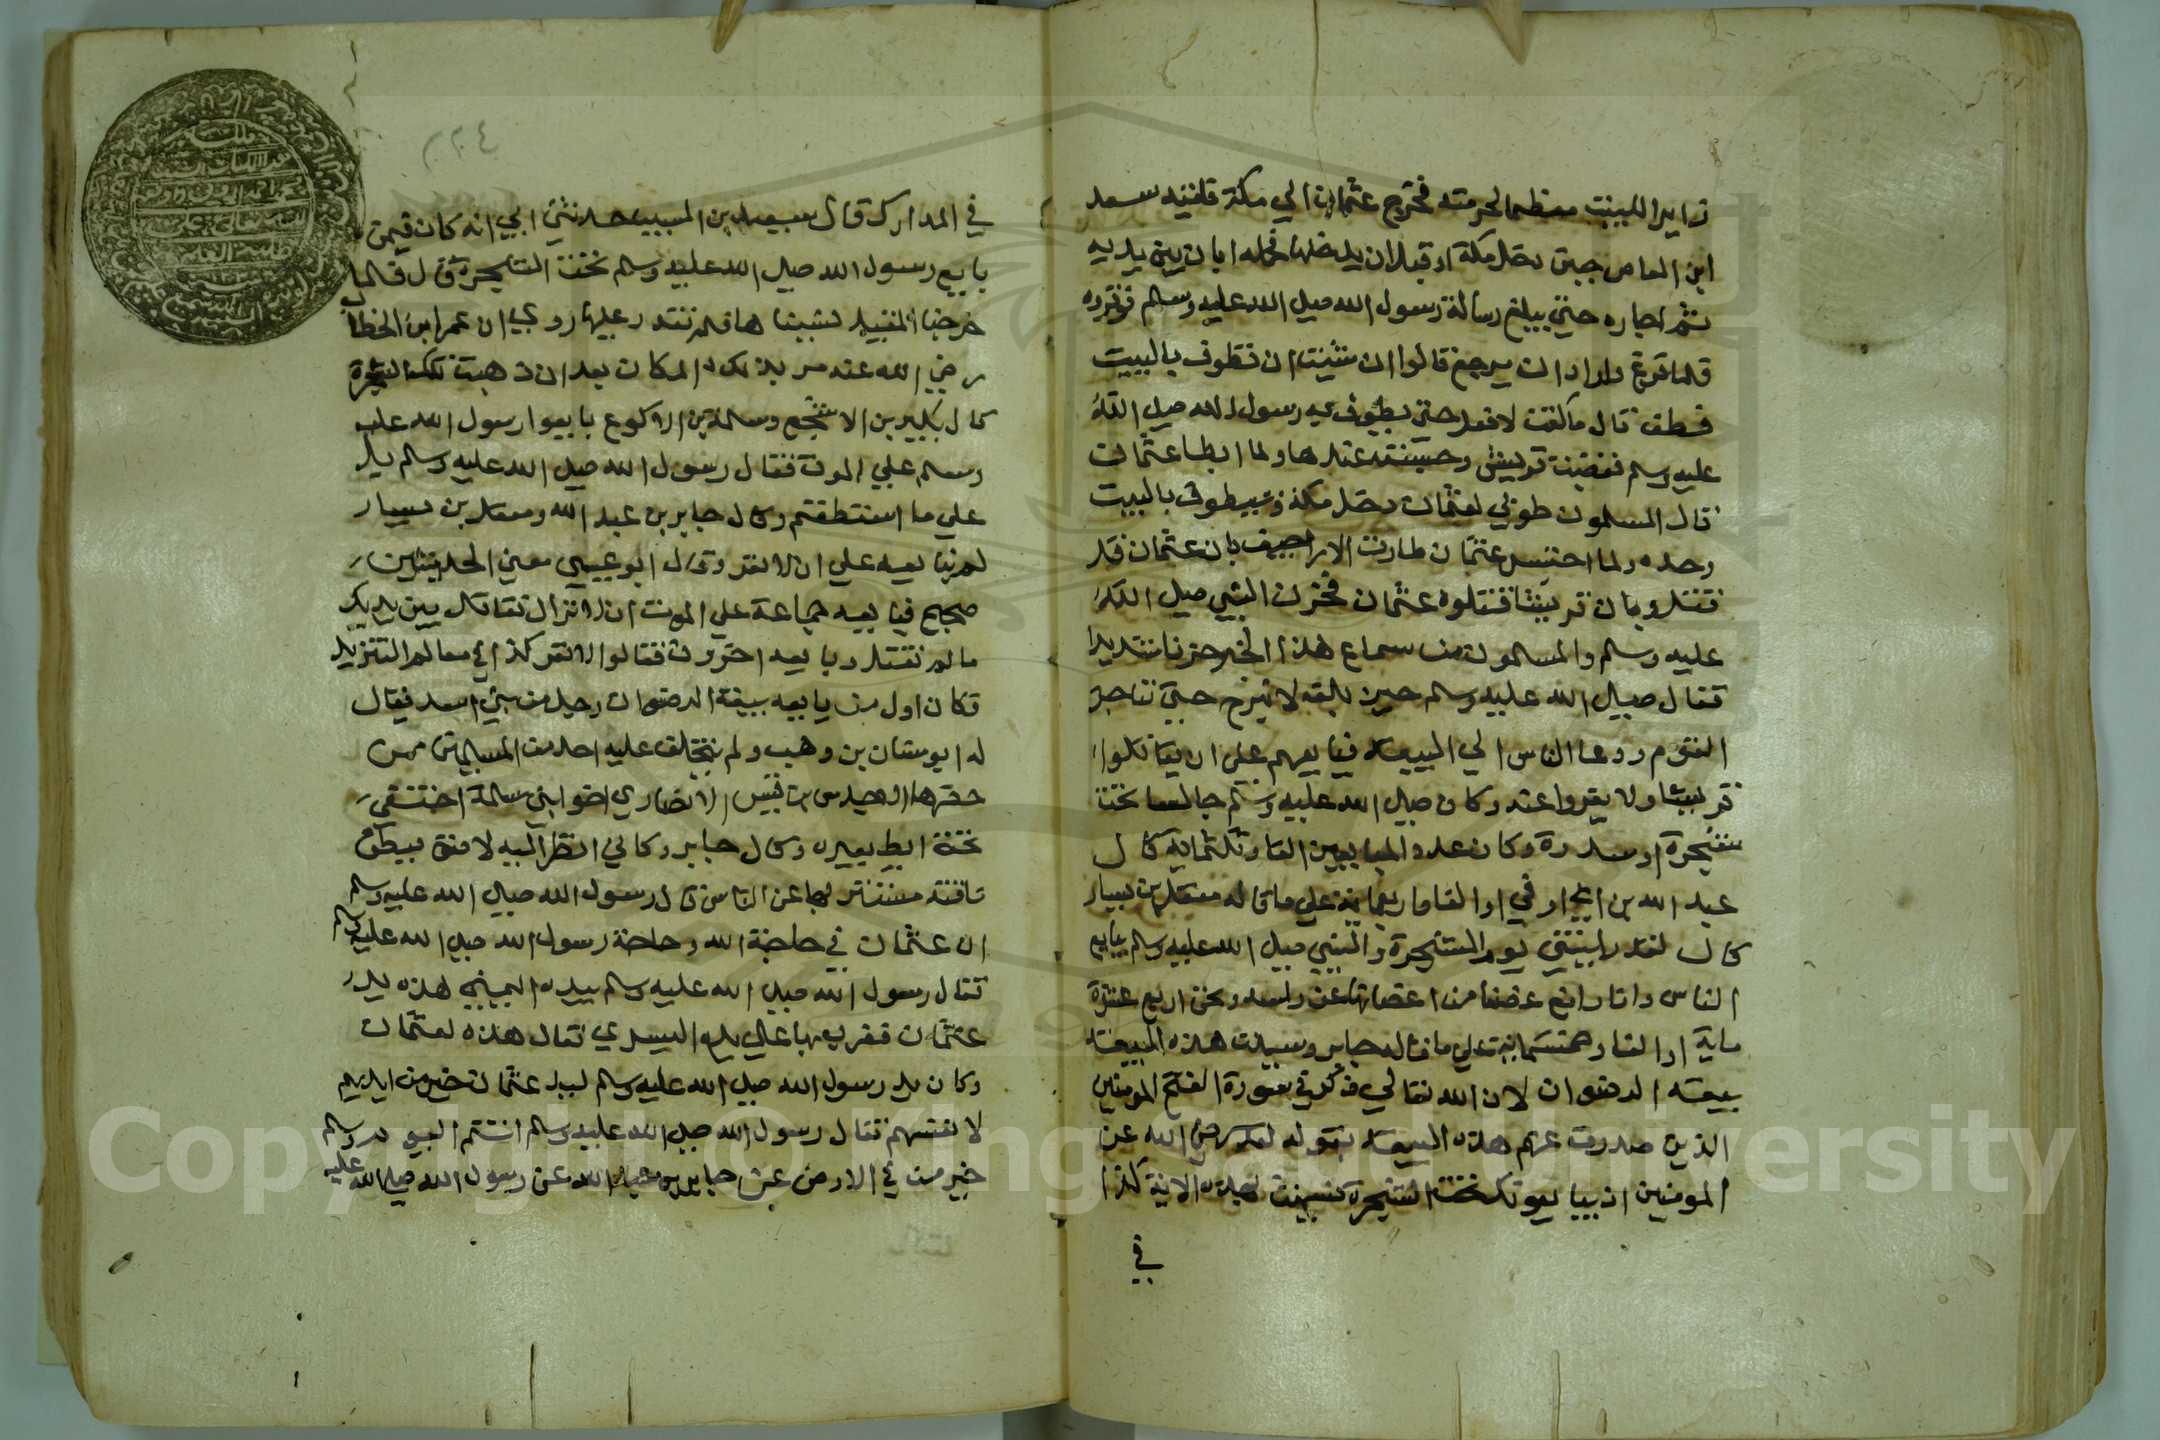 زايرا للبيت معظما لحرمته فخرج عثمان الي مكة فلقيه سعد
ابن العاص حين دخل مكة او قبل ان يدخلها فحمله ابان بين يديه
ثم اجاره حتي يبلغ رسالة رسول الله صلي الله عليه وسلم
فلما فرغ واراد ان يرجع قالوا ان شيت ان تطوف بالبيت
فطف قال ما كنت لافعل حتي يطوف به رسول الله صلي الله
عليه وسلم فغضبت قريش وحبسته عندها ولما ابطا عثمان
قال المسلمون طوبي لعثمان دخل مكة وسيطوف بالبيت
وحده ولما احتبس عثمان طارت الاراجيف بان عثمان قد
قتل وبان قريشا قتلوه عثمان فحزن النبي صلي الله
عليه وسلم والمسلمون من سماع هذا الخبر حزنا شديدا
فقال صلي الله عليه وسلم حين بلغه لا نبرح حتي نناجز
القوم ودعا الناس الي البيعة فبايعهم علي ان يقاتلوا
قريشا ولا يفروا عنه وكان صلي الله عليه وسلم جالسا تحت
شجرة او سدرة وكان عدد المبايعين الفا وثلثماية قال
عبد الله بن ابي اوفي او الفا واربعماية علي ما قاله معقل بن يسار
قال لقد رايتني يوم الشجرة والنبي صلي الله عليه وسلم يبايع
الناس وانا رافع غصنا من اغصانها عن راسه ونحن اربع عشرة
ماية او الفا وخمسماية علي ما قاله جابر وسميت هذه البيعة
بيعة الرضوان لان الله تعالي ذكر في سورة الفتح المومنين
الذين صدرت عنهم هذه البيعة بقوله لقد رضي الله عن
المومنين اذ يبايعونك تحت الشجرة فسميت بهذه الاية كذا
في
٢٢٤
في المدارك قال سعيد بن المسيب حدثني ابي انه كان فيمن
بايع رسول الله صلي الله عليه وسلم تحت الشجرة قال فلما
خرجنا المقبل نسيناها فلم نقدر عليها روي ان عمر ابن الخطاب
رضي الله عنه مر بذلك المكان بعد ان ذهبت تلك الشجرة
قال بكير بن الاشجع وسلمة بن الاكوع بايعوا رسول الله عليه
وسلم علي الموت فقال رسول الله صلي الله عليه وسلم بل
علي ما استطعتم وقال جابر بن عبد الله ومعقل بن يسار
لم نبايعه علي ان لا نفر وقال ابو عيسي معني الحديثين
صحيح فبايعه جماعة علي الموت ان لا نزال نقاتل بين يديك
ما لم نقتل وبايعه اخرون فقالوا لا نفر كذا في معالم التنزيل
فكان اول من بايعه بيعة الرضوان رجل من بني اسد فيقال
له ابو سنان بن وهب ولم يتخلف عليه احد من المسلمين ممن
حضرها الا جد بن قيس الانصاري اخو بني سلمة اختفي
تحت ابط بعيره وقال جابر وكاني انظر اليه لاصق ببطن
ناقته مستتر بها عن الناس قال رسول الله صلي الله عليه وسلم
ان عثمان في حاجة الله وحاجة رسول الله صلي الله عليه وسلم
فقال رسول الله صلي الله عليه وسلم بيده اليمني هذه يد
عثمان فضرب بها علي يده اليسري فقال هذه لعثمان
وكان يد رسول الله صلي الله عليه وسلم ليد عثمان خير من ايديهم
لانفسهم فقال رسول الله صلي الله عليه وسلم انتم اليوم
خير من في الارض عن جابر بن عبد الله عن رسول الله صلي الله عليه
Copyright © King Saud University